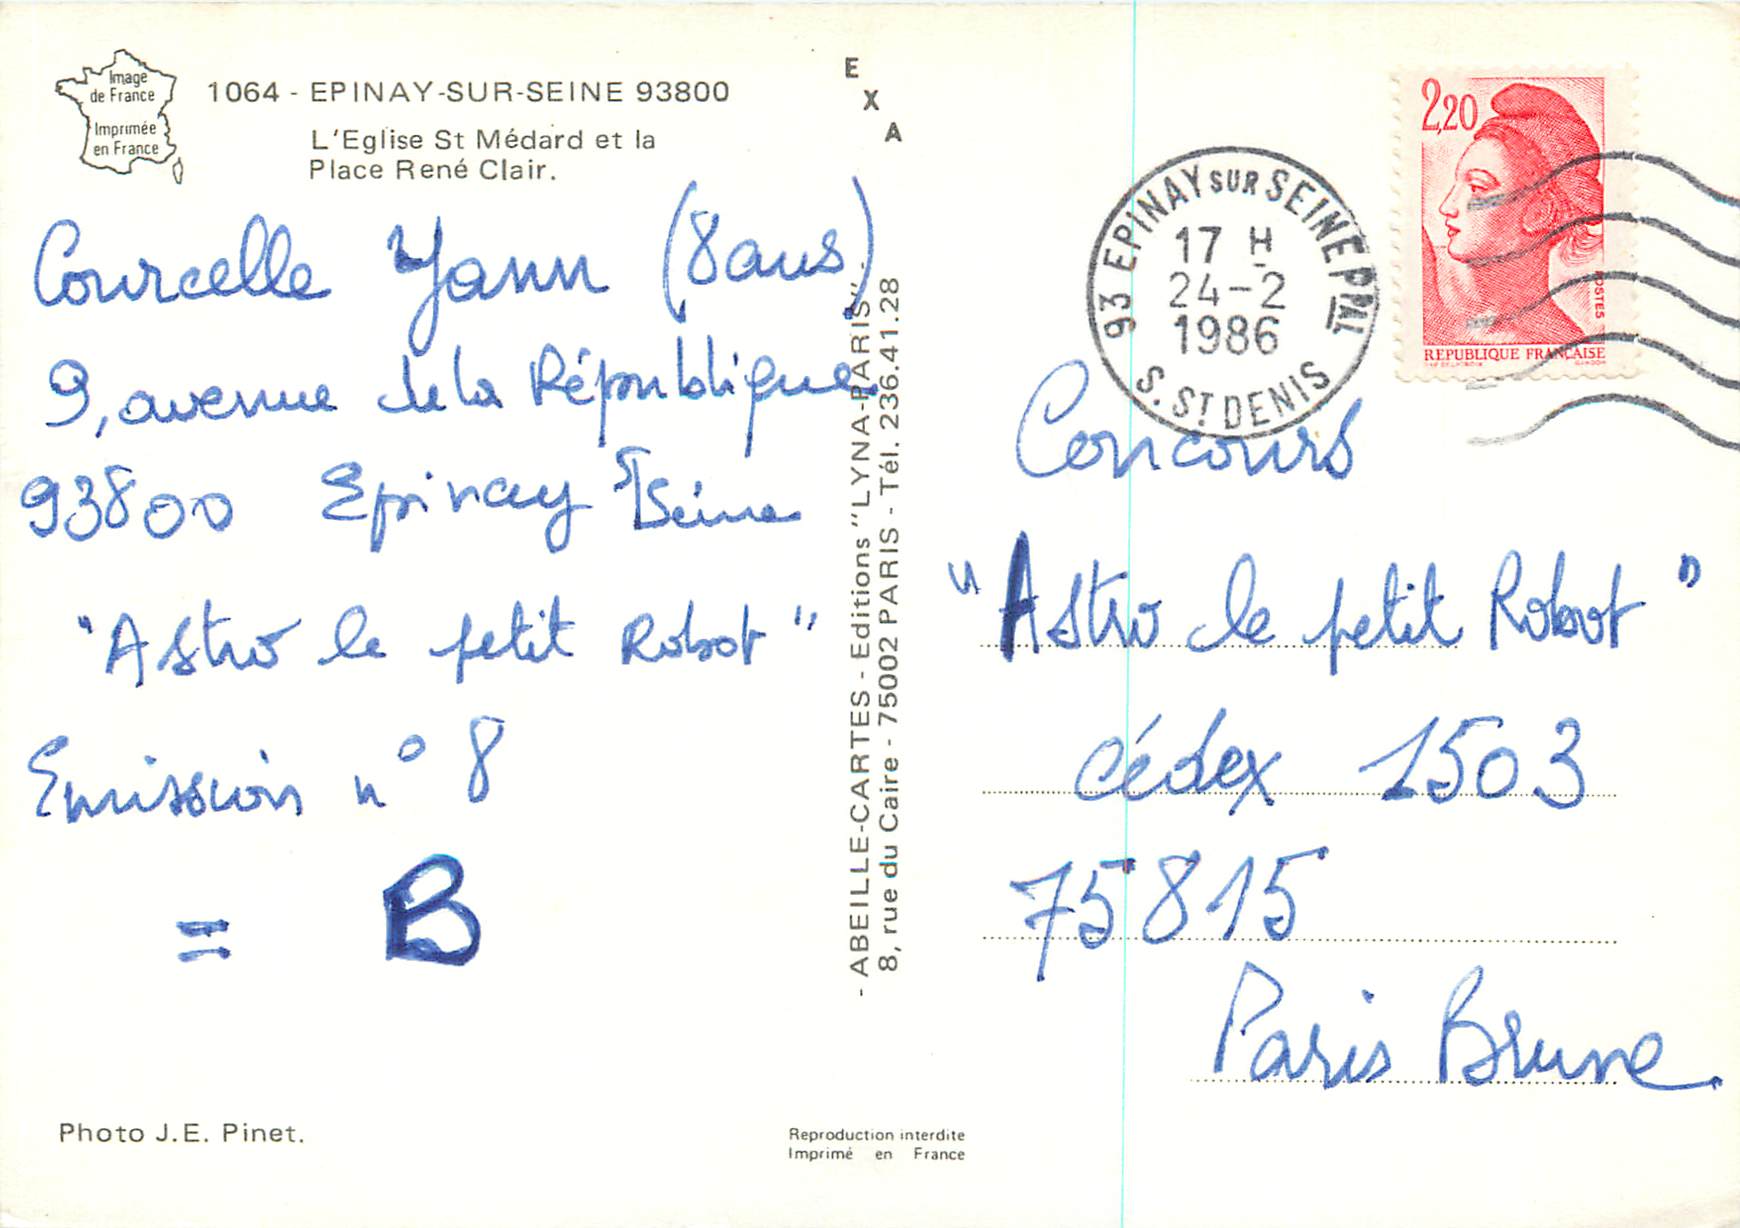 Image
de France
Imprimée
en France
1064 - EPINAY-SUR-SEINE 93800
L'Eglise St Médard et la
Place René Clair.
Courcelle Yann (8 ans)
9, avenue de la République
93800 Epinay S/Seine
"Astro le petit Robot"
Emission n° 8
= B
Photo J.E. Pinet.
E
X
A
- ABEILLE-CARTES - Editions "LYNA-PARIS" -
8, rue du Caire - 75002 PARIS - Tél. 236.41.28
Reproduction interdite
Imprimé en France
93 EPINAY SUR SEINE PPAL
17 H
24-2
1986
S. ST DENIS
2,20
POSTES
REPUBLIQUE FRANÇAISE
Concours
"Astro le petit Robot"
cédex 1503
75815
Paris Brune